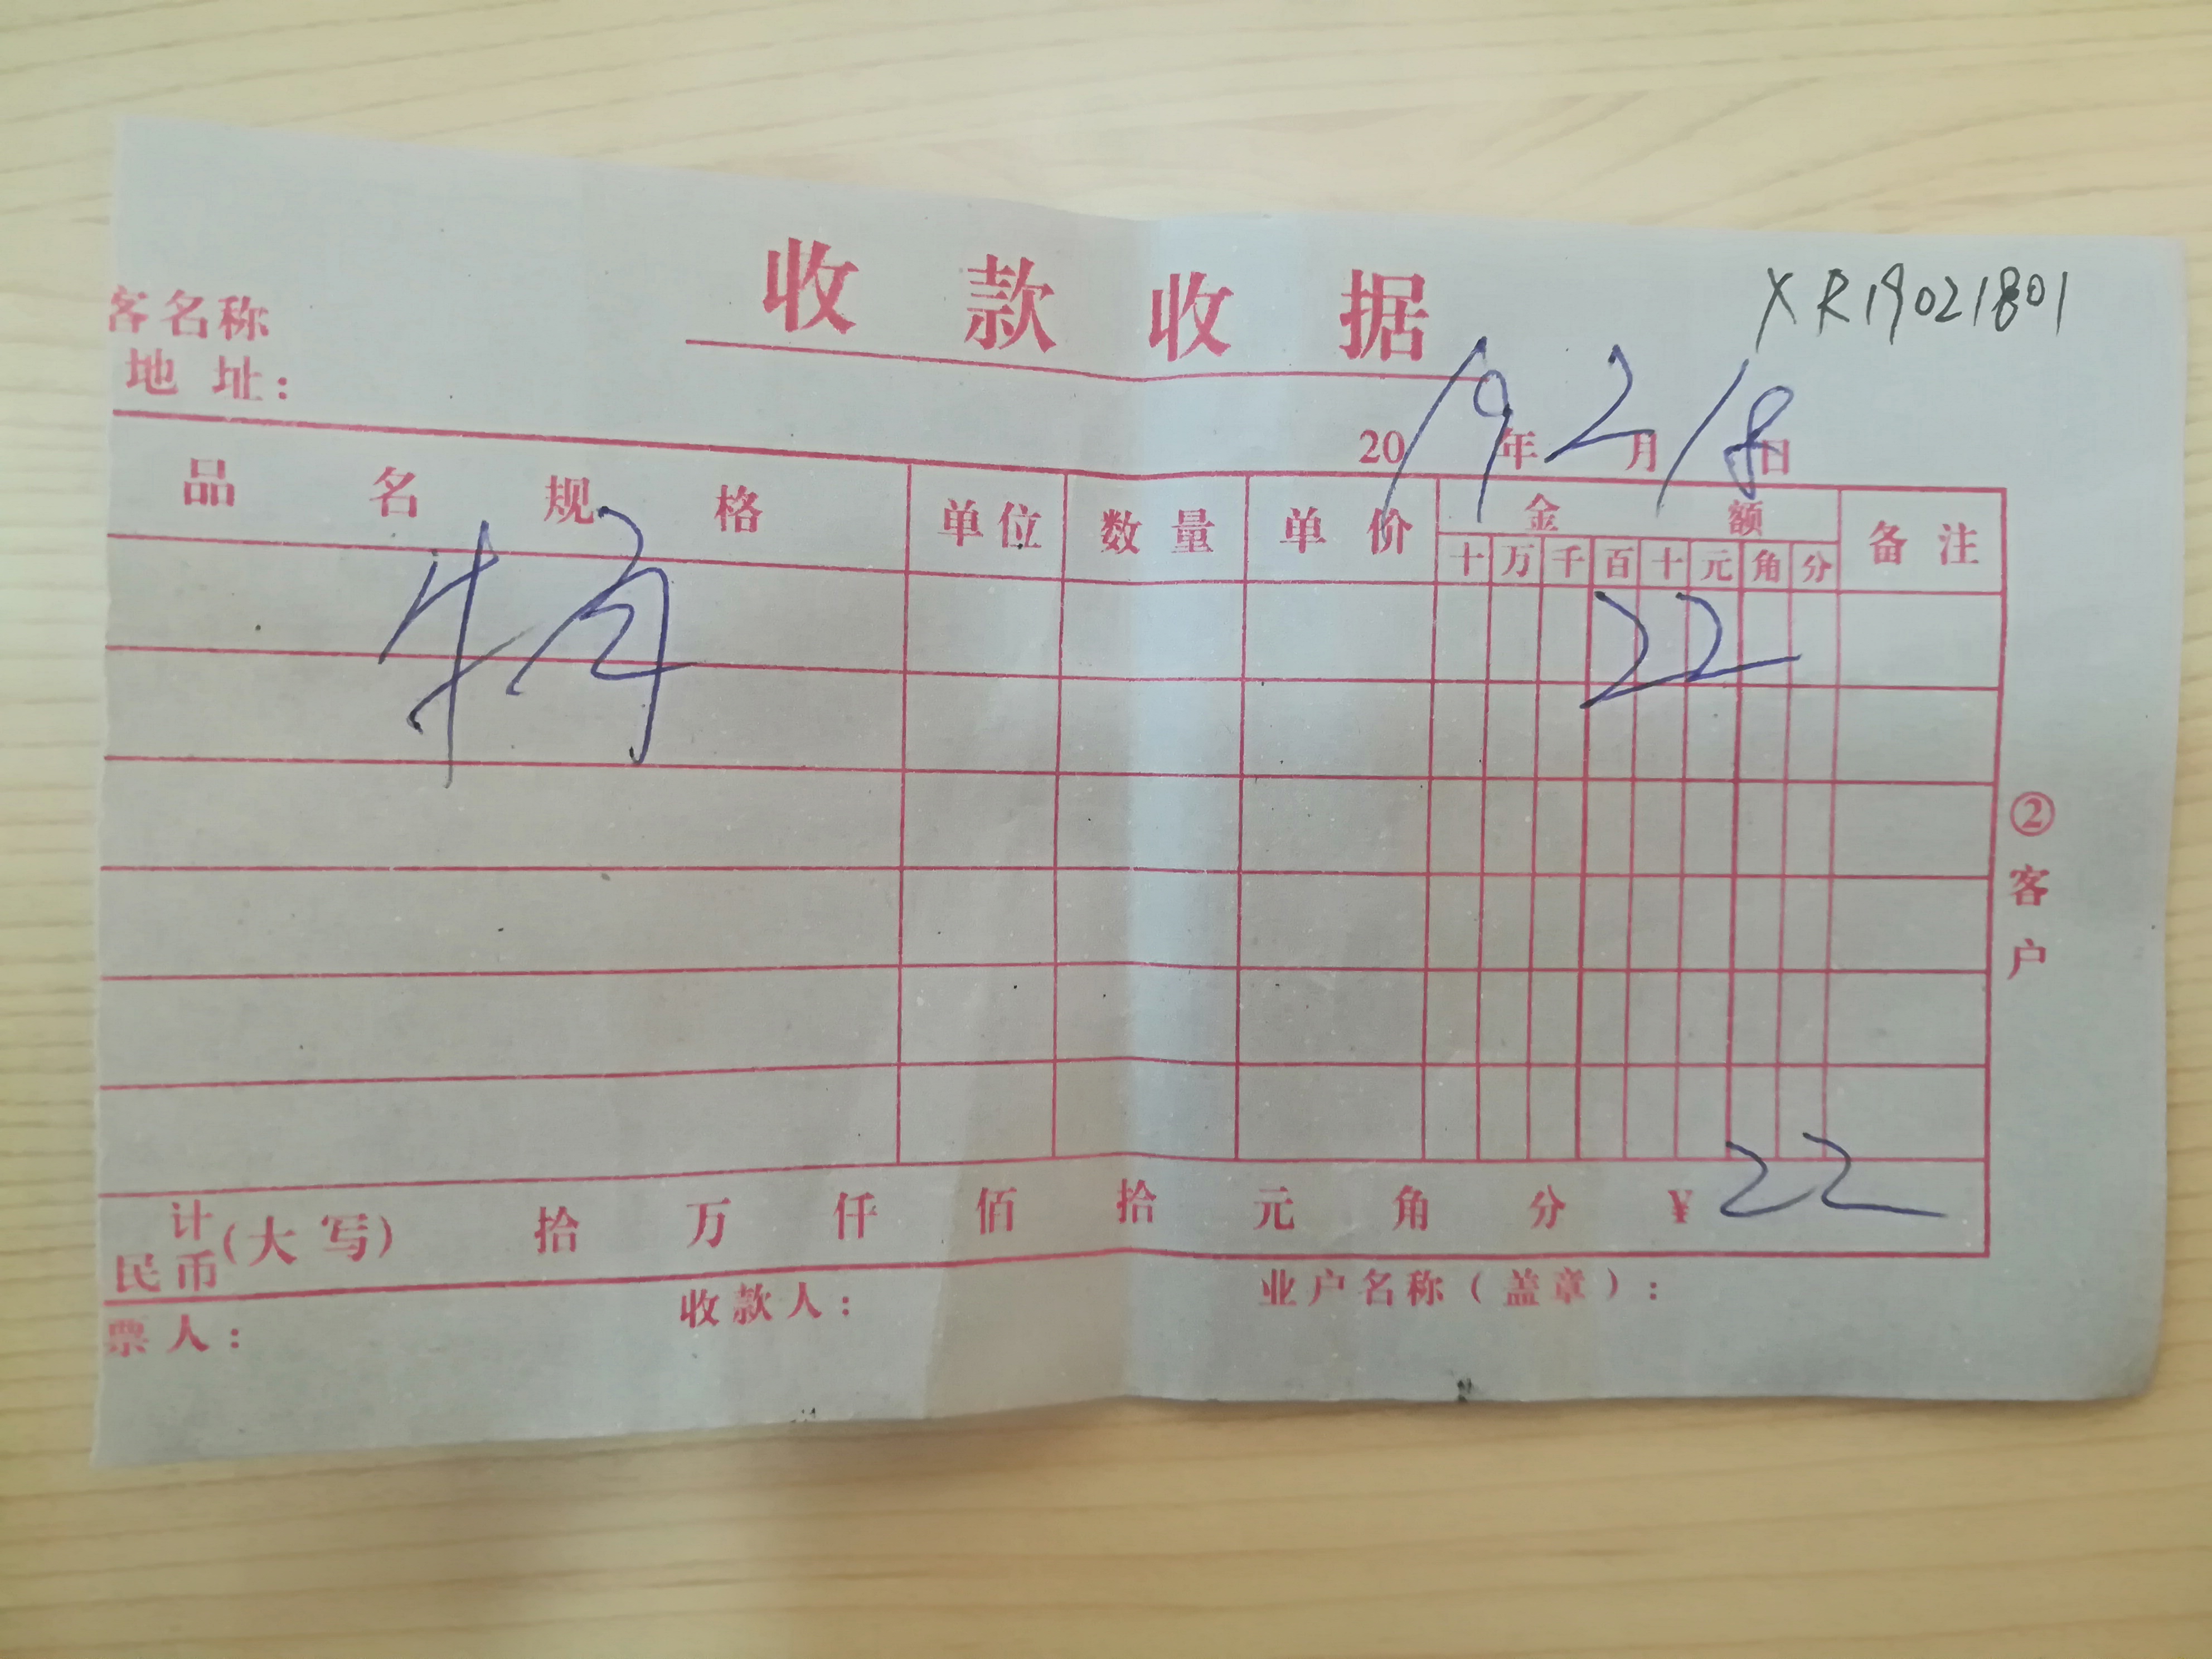 收款收据
XR19021801
客名称
地址：
2019年2月18日
品名规格 单位 数量 单价 金额 备注
十 万 千 百 十 元 角 分
22
②客户
计
民币(大写) 拾 万 仟 佰 拾 元 角 分 ¥22
票人： 收款人： 业户名称（盖章）：